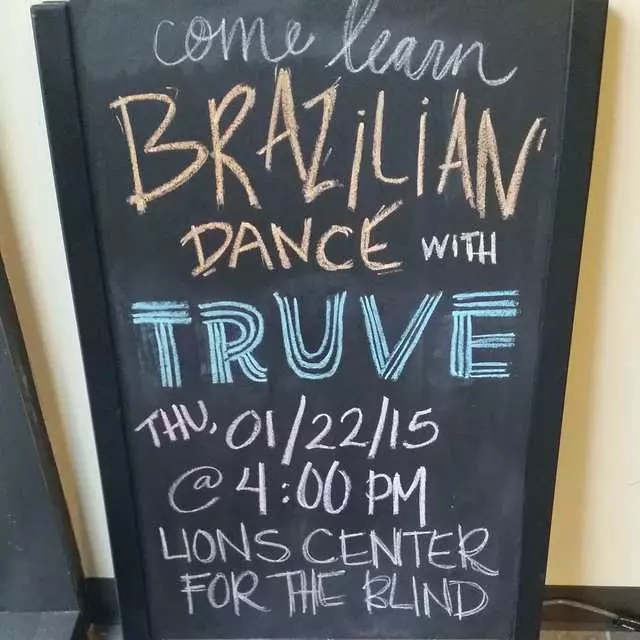 come learn
BRAZiLiAN
DANCE WITH
TRUVE
THU. 01/22/15
@ 4:00 PM
LIONS CENTER
FOR THE BLIND